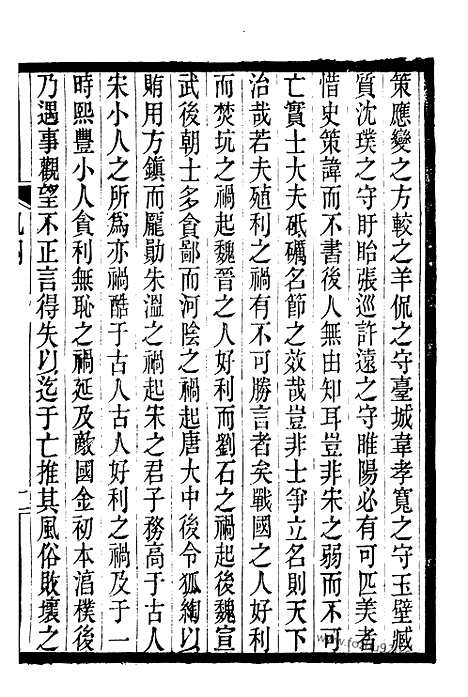 策應變之方較之羊侃之守臺城韋孝寬之守玉壁臧
質沈璞之守盱眙張巡許遠之守睢陽必有可匹美者
惜史策諱而不書後人無由知耳豈非宋之弱而不可
亡實士大夫砥礪名節之效哉豈非士爭立名則天下
治哉若夫殖利之禍有不可勝言者矣戰國之人好利
而焚坑之禍起魏晉之人好利而劉石之禍起後魏宣
武後朝士多貪鄙而河陰之禍起唐大中後令狐綯以
賄用方鎮而龐勛朱溫之禍起宋之君子務高于古人
宋小人之所爲亦禍酷于古人古人好利之禍及于一
時熙豐小人貪利無恥之禍延及敵國金初本淳樸後
乃遇事觀望不正言得失以迄于亡推其風俗敗壞之